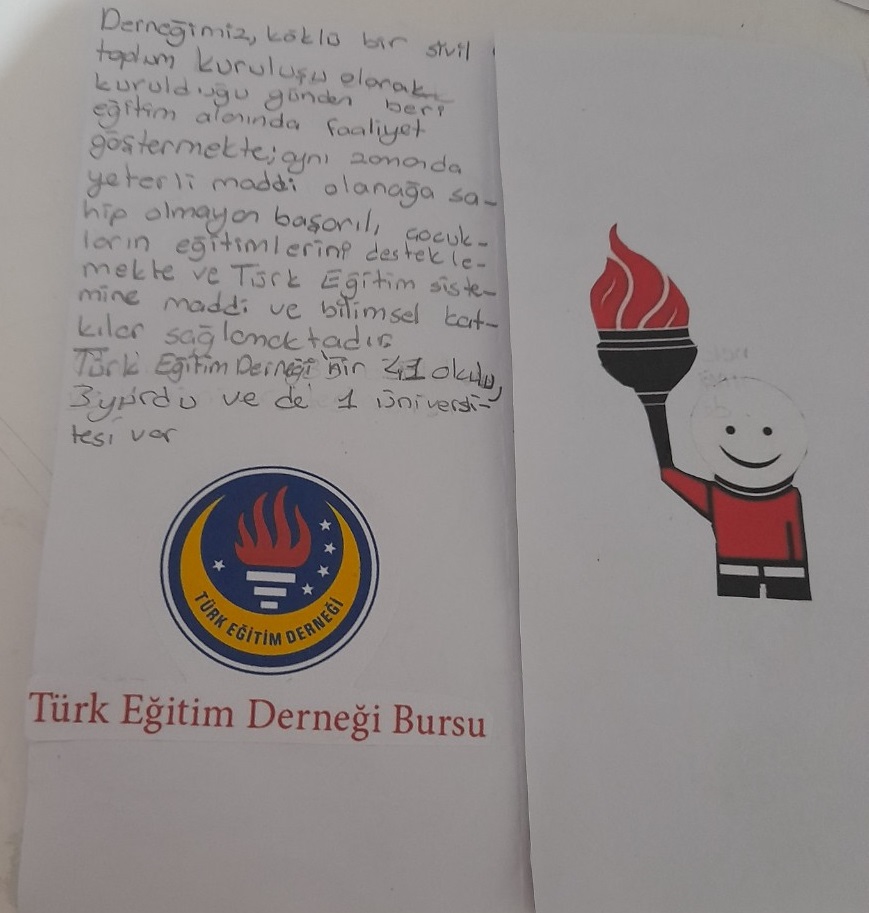 Derneğimiz, köklü bir sivil
toplum kuruluşu olarak
kurulduğu günden beri
eğitim alanında faaliyet
göstermekte; aynı zamanda
yeterli maddi olanağa sa-
hip olmayan başarılı, çocuk-
ların eğitimlerine destekle-
mekte ve Türk Eğitim siste-
mine maddi ve bilimsel kat-
kılar sağlamaktadır
Türk Eğitim Derneği'nin 41 okulu,
3 yurdu ve de 1 üniversi-
tesi var
TÜRK EĞİTİM DERNEĞİ
Türk Eğitim Derneği Bursu